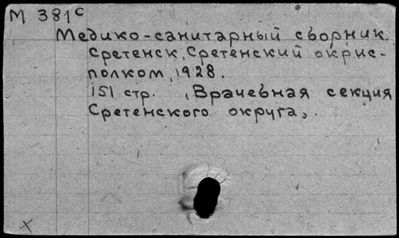 М 381с
Медико-санитарный сборник.
Сретенск, Сретенский окрис-
полком, 1928.
151 стр. , Врачебная секция
Сретенского округа,
x